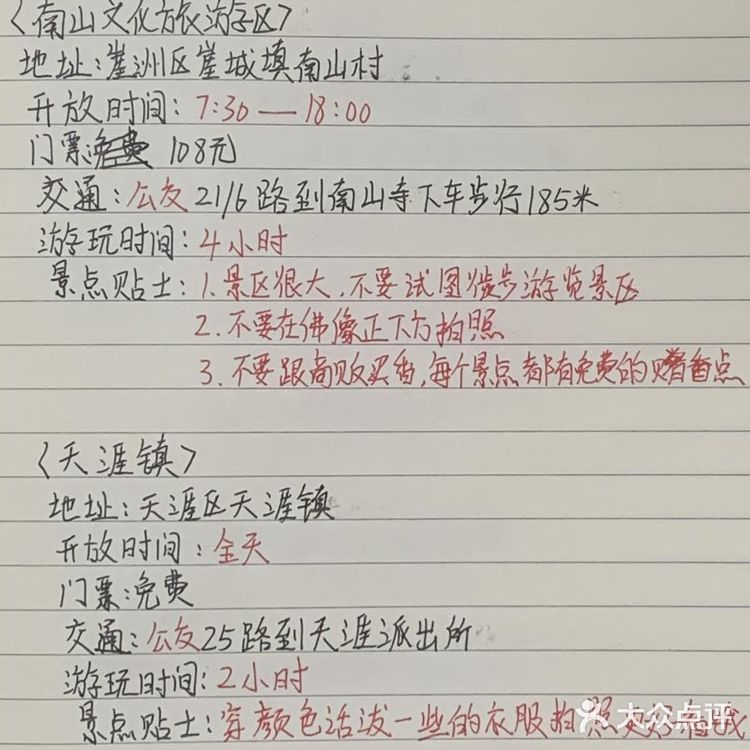 〈南山文化旅游区〉
地址:崖洲区崖城填南山村
开放时间:7:30—18:00
门票:免费 108元
交通:公交21/6路到南山寺下车步行185米
游玩时间:4小时
景点贴士:1.景区很大,不要试图徒步游览景区
2.不要在佛像正下方拍照
3.不要跟商贩买香,每个景点都有免费的赠香点
〈天涯镇〉
地址:天涯区天涯镇
开放时间:全天
门票:免费
交通:公交25路到天涯派出所
游玩时间:2小时
景点贴士:穿颜色活泼一些的衣服拍照
大众点评